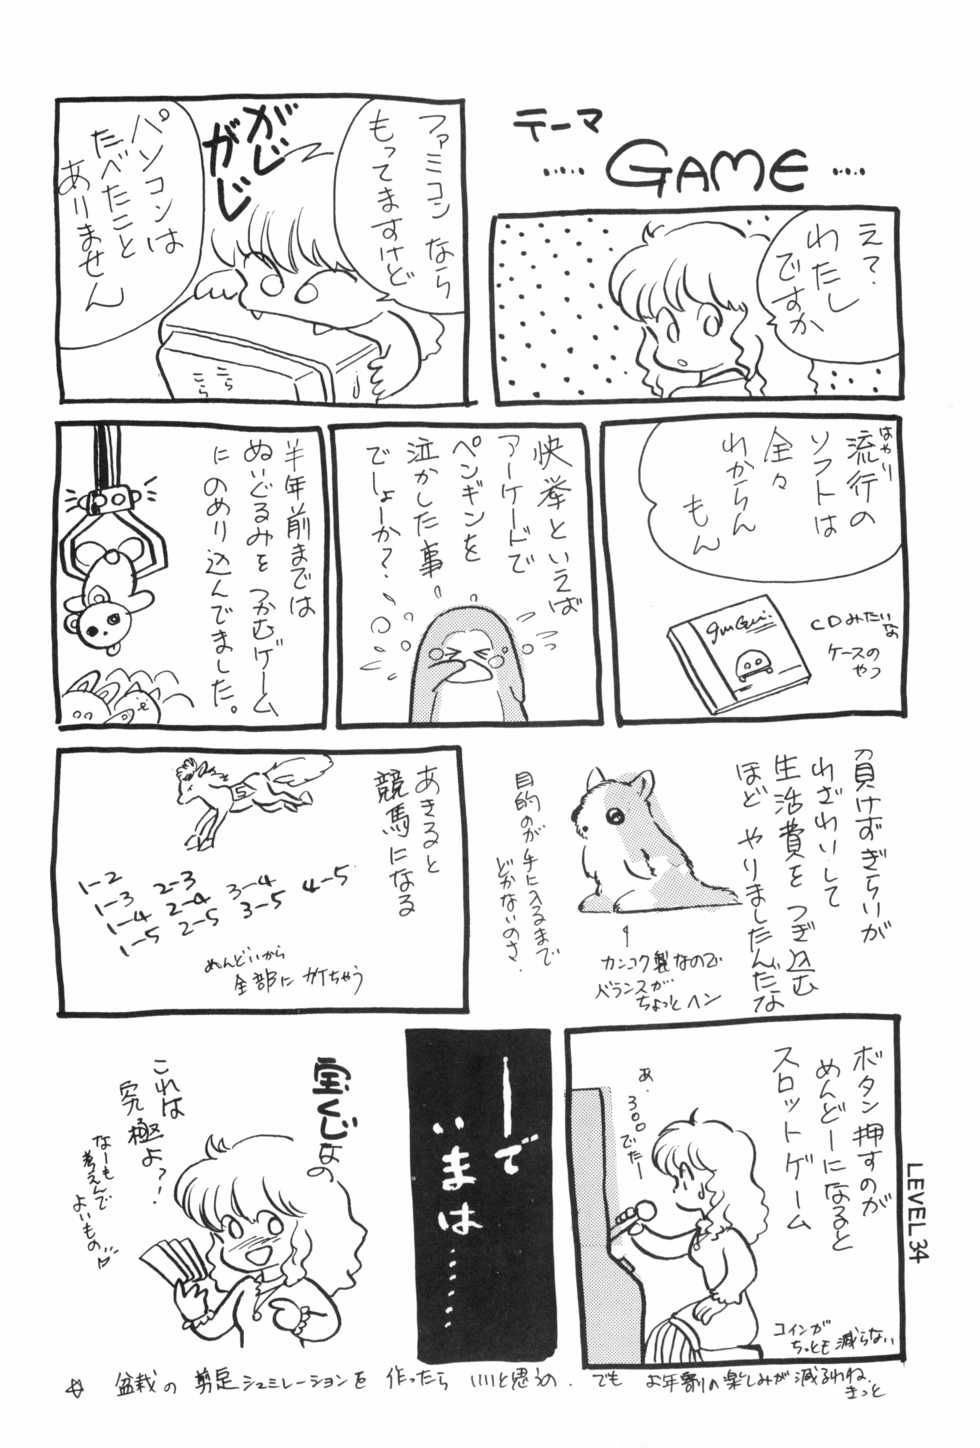 テーマ
……GAME……
え?
わたし
ですか
ファミコンなら
もってますけど
がじ
がじ
パソコンは
たべたこと
ありません
こら
こら
流行の
はやり
ソフトは
全々
わからん
もん
CDみたいな
ケースの
やつ
快挙といえば
アーケードで
ペンギンを
泣かした事
でしょーか?
半年前までは
ぬいぐるみをつかむゲーム
にのめり込んでました。
負けずぎらいが
わざわいして
生活費をつぎ込む
ほどやりましたんだな
目的のが手に入るまで
どかないのさ.
カンコク製なので
バランスが
ちょっとヘン
あきると
競馬になる
5
1-2
1-3
1-4
1-5
2-3
2-4
2-5
3-4
3-5
4-5
めんどいから
全部にカケちゃう
ボタン押すのが
めんどーになると
スロットゲーム
あ.
300でたー
コインが
ちっとも減らない
――で
いまは………
宝くじなの
これは
究極よ?!
なーもんで
考えんで
よいもの
LEVEL 34
盆栽の剪定シュミレーションを作ったらいいと思うの.でもお年寄りの楽しみが減るわね.
きっと